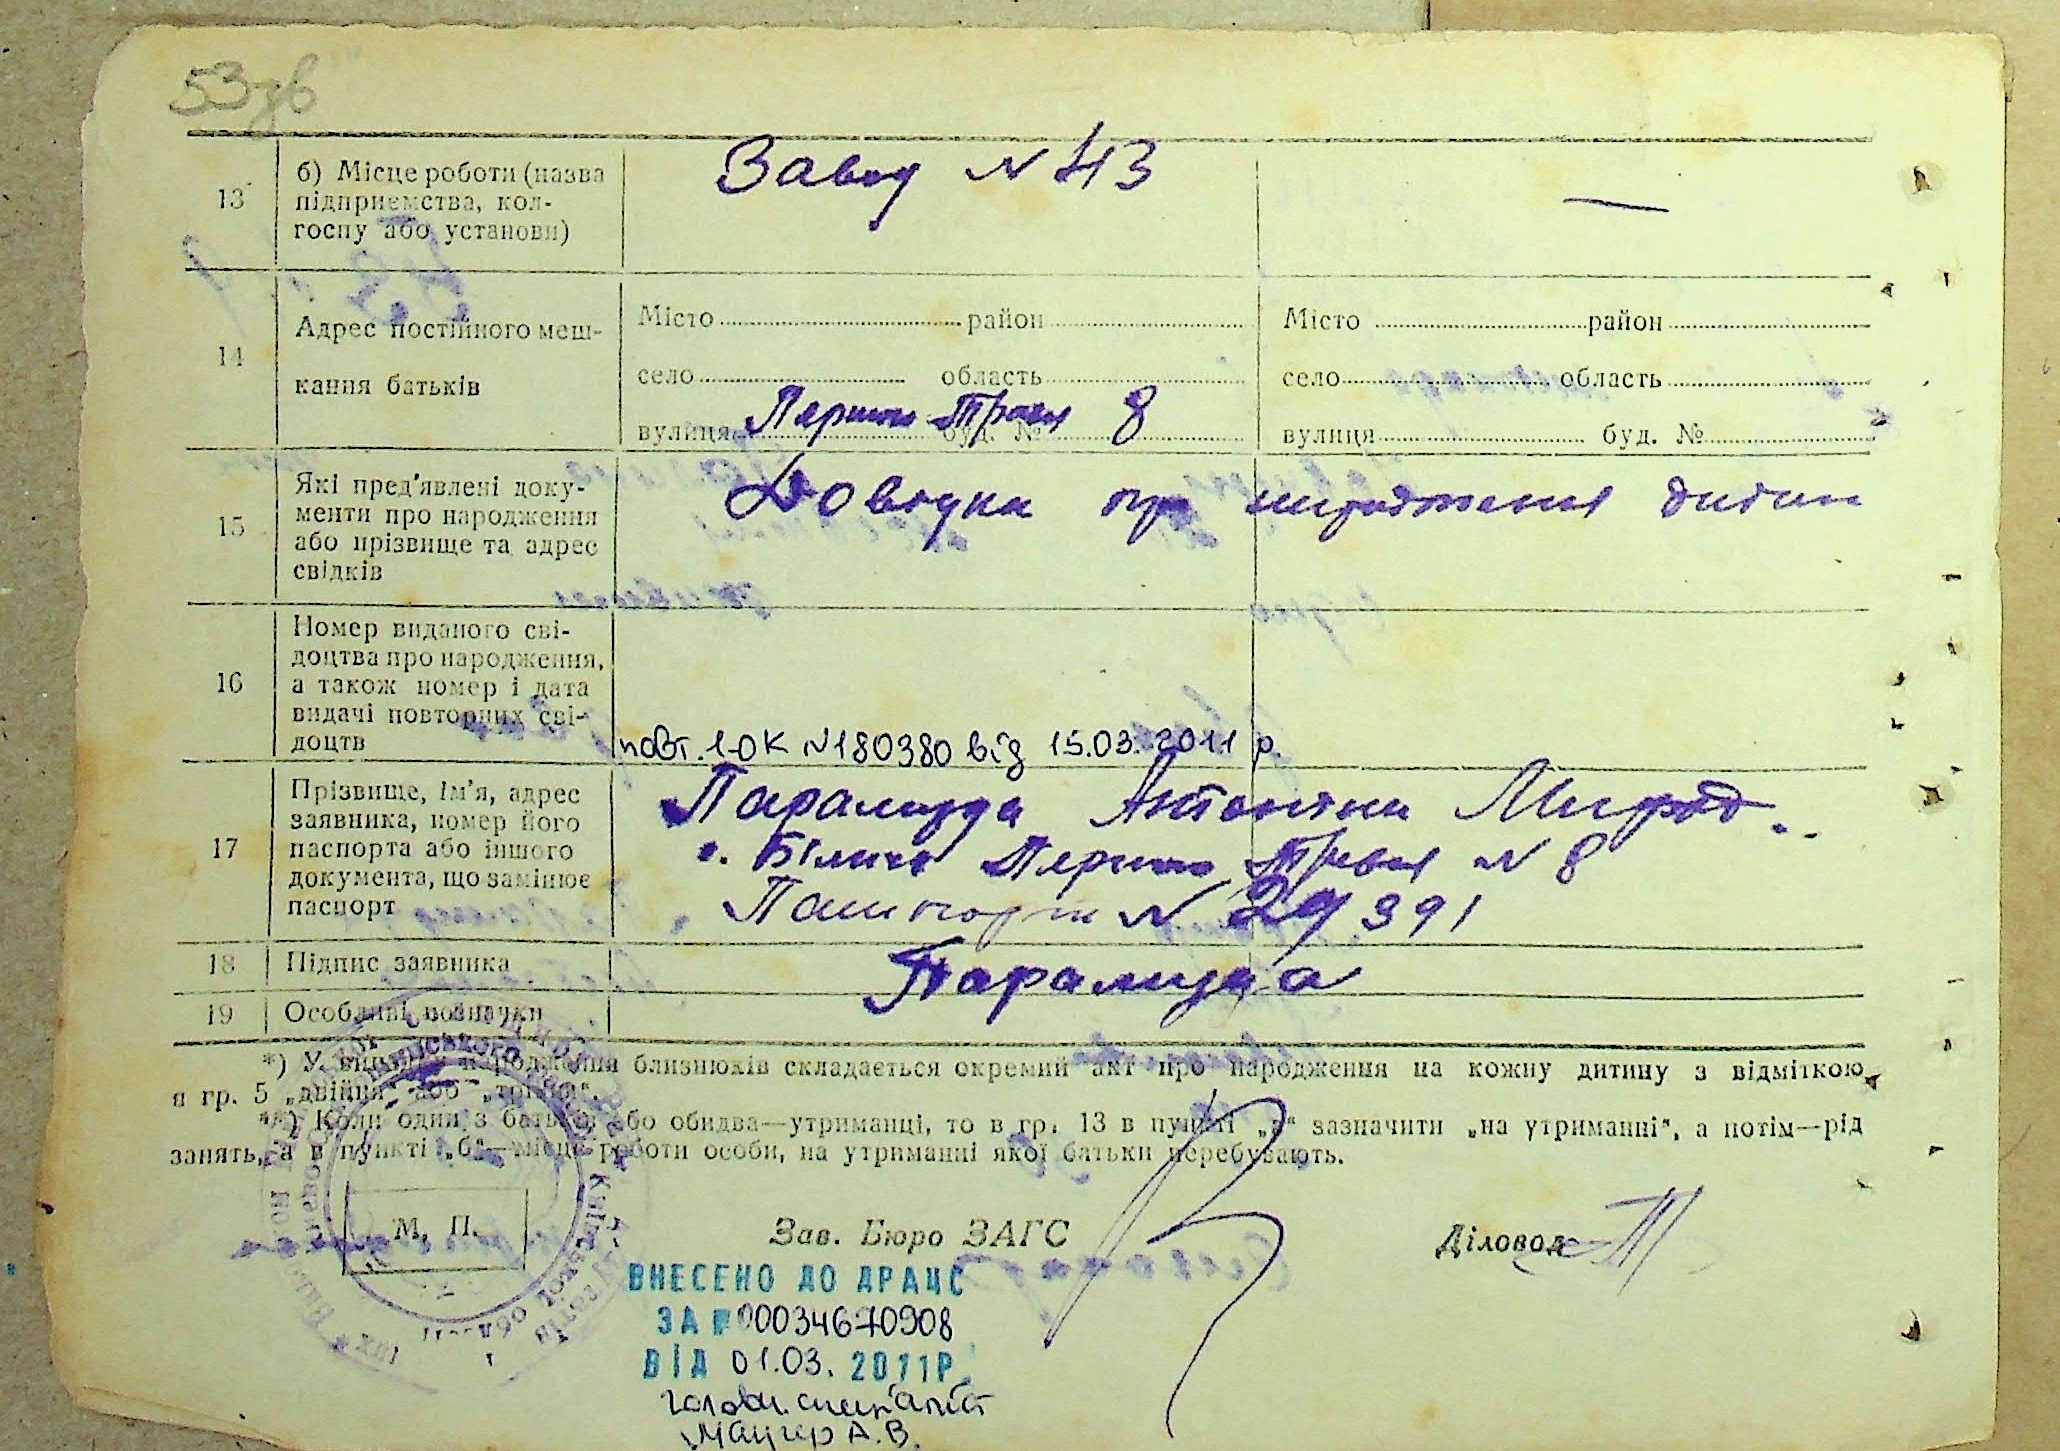 53зв
13 б) Місце роботи (назва підприемства, колгоспу або установи) Завод N 43 —
14 Адрес постійного мешкання батьків
Місто район Місто район
село область село область
вулиця Перши Травня буд. № 8 вулиця буд. №
15 Які пред'явлені документи про народження або прізвище та адрес свідків Довідка про народження дитини
16 Номер виданого свідоцтва про народження, а також номер і дата видачі повторних свідоцтв
повт. 1-ОК N180380 від 15.03.2011 р.
17 Прізвище, ім'я, адрес заявника, номер його паспорта або іншого документа, що замінює паспорт
Парамизда Антоніна Мирод..
с. Біличі Перши Травня N 8
Пашпорт N 29391
18 Підпис заявника Парамизда
19 Особливі позначки
*) У випадку народження близнюків складається окремий акт про народження на кожну дитину з відміткою
в гр. 5 „двійня" або „трійня".
**) Коли один з батьків або обидва—утриманці, то в гр. 13 в пункті „а" зазначити „на утриманні", а потім—рід
занять, а в пункті „б"—місце роботи особи, на утриманні якої батьки перебувають.
М. П.
Зав. Бюро ЗАГС Діловод
ВНЕСЕНО ДО ДРАЦС
ЗА №00034670908
ВІД 01.03. 2011Р.
головн. спеціаліст
А.В.